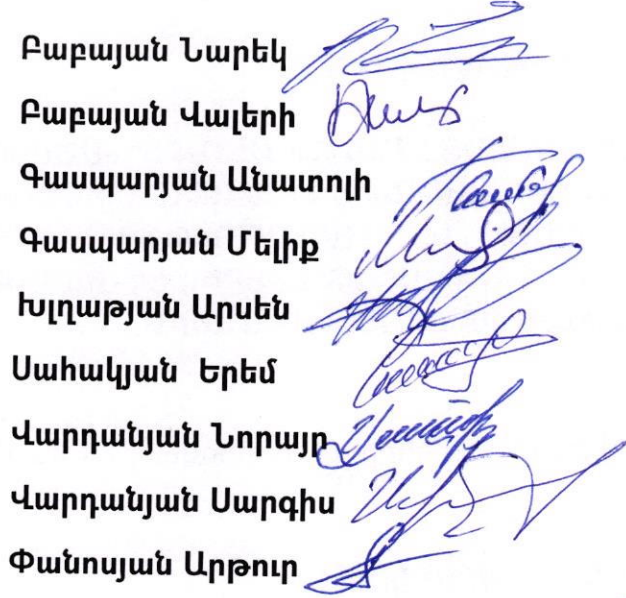 Բաբայան Նարեկ
Բաբայան Վալերի
Գասպարյան Անատոլի
Գասպարյան Մելիք
Խլղաթյան Արսեն
Սահակյան Երեմ
Վարդանյան Նորայր
Վարդանյան Սարգիս
Փանոսյան Արթուր